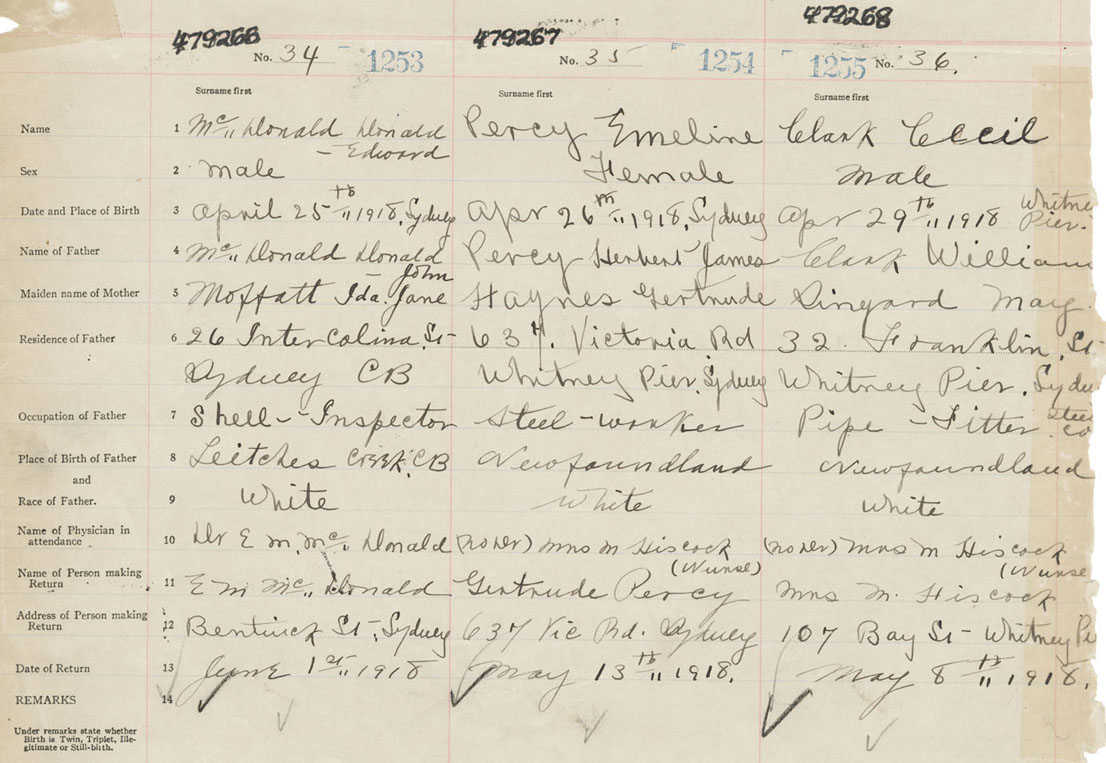 479266 479267 479268
No. 34 1253 No. 35 1254 1255 No. 36.
Surname first Surname first Surname first
Name 1 Mc„ Donald Donald Percy Emeline Clark Cecil
– Edward
Sex 2 Male Female Male
Date and Place of Birth 3 April 25th„ 1918, Sydney Apr 26th„ 1918, Sydney Apr 29th„ 1918 Whitney Pier.
Name of Father 4 Mc„ Donald Donald Percy Herbert James Clark William
– John
Maiden name of Mother 5 Moffatt Ida Jane Haynes Gertrude May.
Residence of Father 6 26 Intercolina St– 637. Victoria Rd 32 Franklin St
Sydney CB Whitney Pier, Sydney Whitney Pier, Sydne
Occupation of Father 7 Shell – Inspector Steel – worker Pipe – Fitter Steel Co
Place of Birth of Father 8 Leitches Creek, CB Newfoundland Newfoundland
and
Race of Father. 9 White White White
Name of Physician in attendance 10 Dr E M Mc„ Donald (no Dr) Mrs M Hiscock (no Dr) Mrs M Hiscock
(Nurse) (Nurse
Name of Person making Return 11 E M Mc„ Donald Gertrude Percy Mrs M. Hiscock
Address of Person making Return 12 Bentinck St – Sydney 637 Vic Rd. Sydney 107 Bay St – Whitney Pi
Date of Return 13 June 1st„ 1918 May 13th„ 1918. May 8th„ 1918.
REMARKS 14
Under remarks state whether
Birth is Twin, Triplet, Ille-
gitimate or Still-birth.